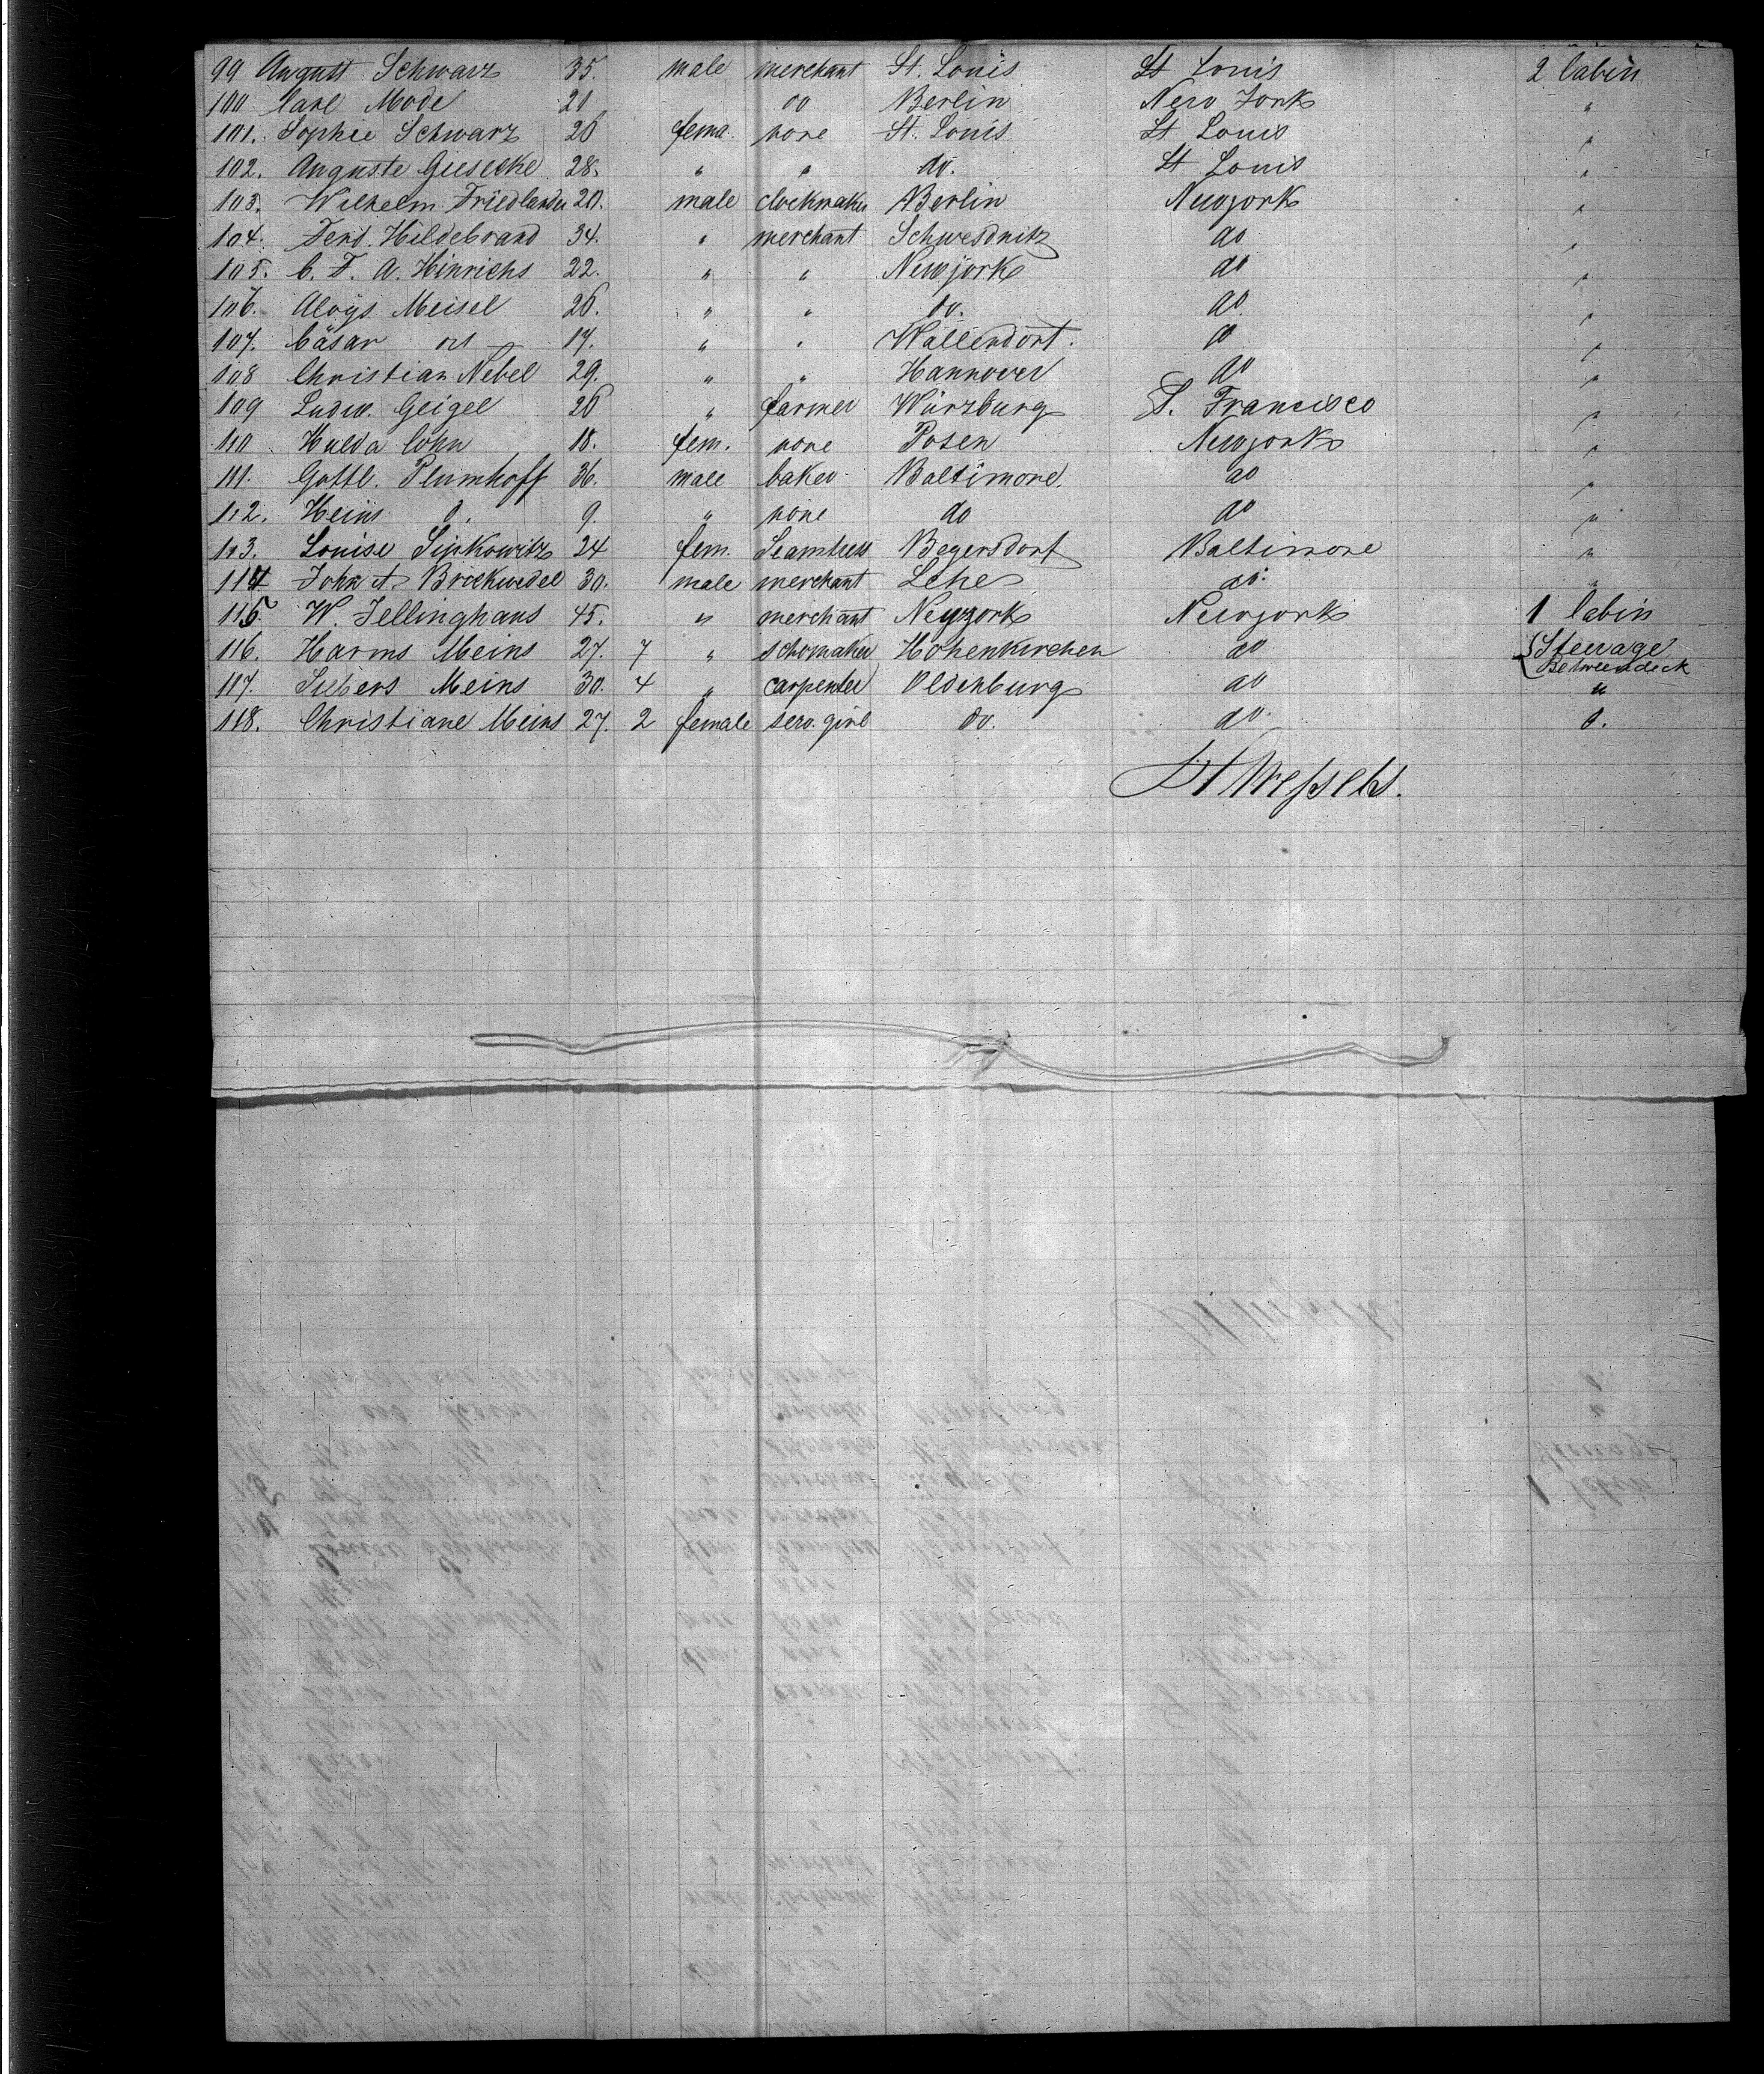 99 August Schwarz 35. male merchant St. Louis St Louis 2 Cabin
100 Carl Mode 21 " do Berlin New York "
101. Sophie Schwarz 26 fema. none St. Louis St Louis "
102. Auguste Giesecke 28. " " do. St Louis "
103. Wilhelm Friedlander 20. male clockmaker Berlin Newyork "
104. Ferd. Hildebrand 34. " merchant Schweidnitz do "
105. C. F. A. Hinrichs 22. " " Newjork do "
106. Aloys Meisel 26. " " do. do. "
107. Cäsar do 17. " " Wallendorf. do "
108 Christian Nebel 29. " " Hannover do "
109 Ludw. Geigel 26 " farmer Würzburg S. Francisco "
110 Hulda Cohn 18. fem. none Posen Newyork "
111. Gottl. Plumhoff 36. male baker Baltimore. do "
112. Heins d. 9. " none do do "
113. Louise Sipkowitz 24 fem. Seamtress Begersdorf Baltimore "
114 John A. Brickwedel 30. male merchant Lehe do. "
115. W. Jellinghaus 45. " merchant Neyyork Newyork 1 Cabin
116. Harms Meins 27. 7 " schomaker Hohenkirchen do Stewage
Betweendeck
117. Siebers Meins 30. 4 " carpenter Oldenburg do "
118. Christiane Meins 27. 2 female serv. girl do. do. d.
Wessels.